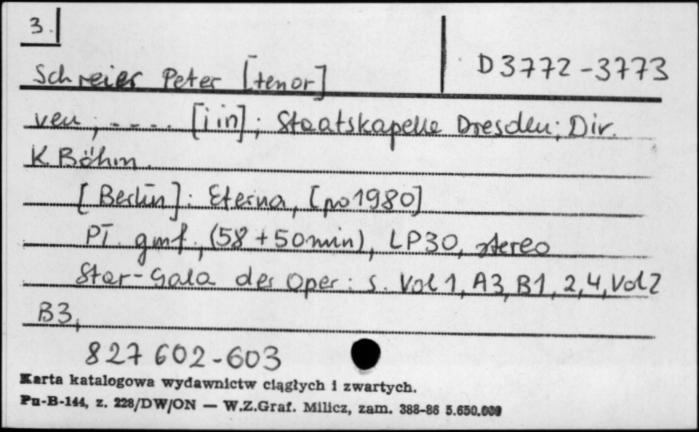 3.
Schreier Peter [tenor]
D 3772-3773
ven ; - - - . [i in] ; Staatskapelle Dresden ; Dir.
K. Böhm.
[Berlin] : Eterna, [po 1980]
Pł. gmf., (58 + 50 min), LP30, stereo
Star-Gala der Oper : s. Vol 1, A3, B1, 2, 4, Vol 2
B3,
827 602-603
Karta katalogowa wydawnictw ciągłych i zwartych.
Pu-B-144, z. 228/DW/ON — W.Z.Graf. Milicz, zam. 388-86 5.650.000